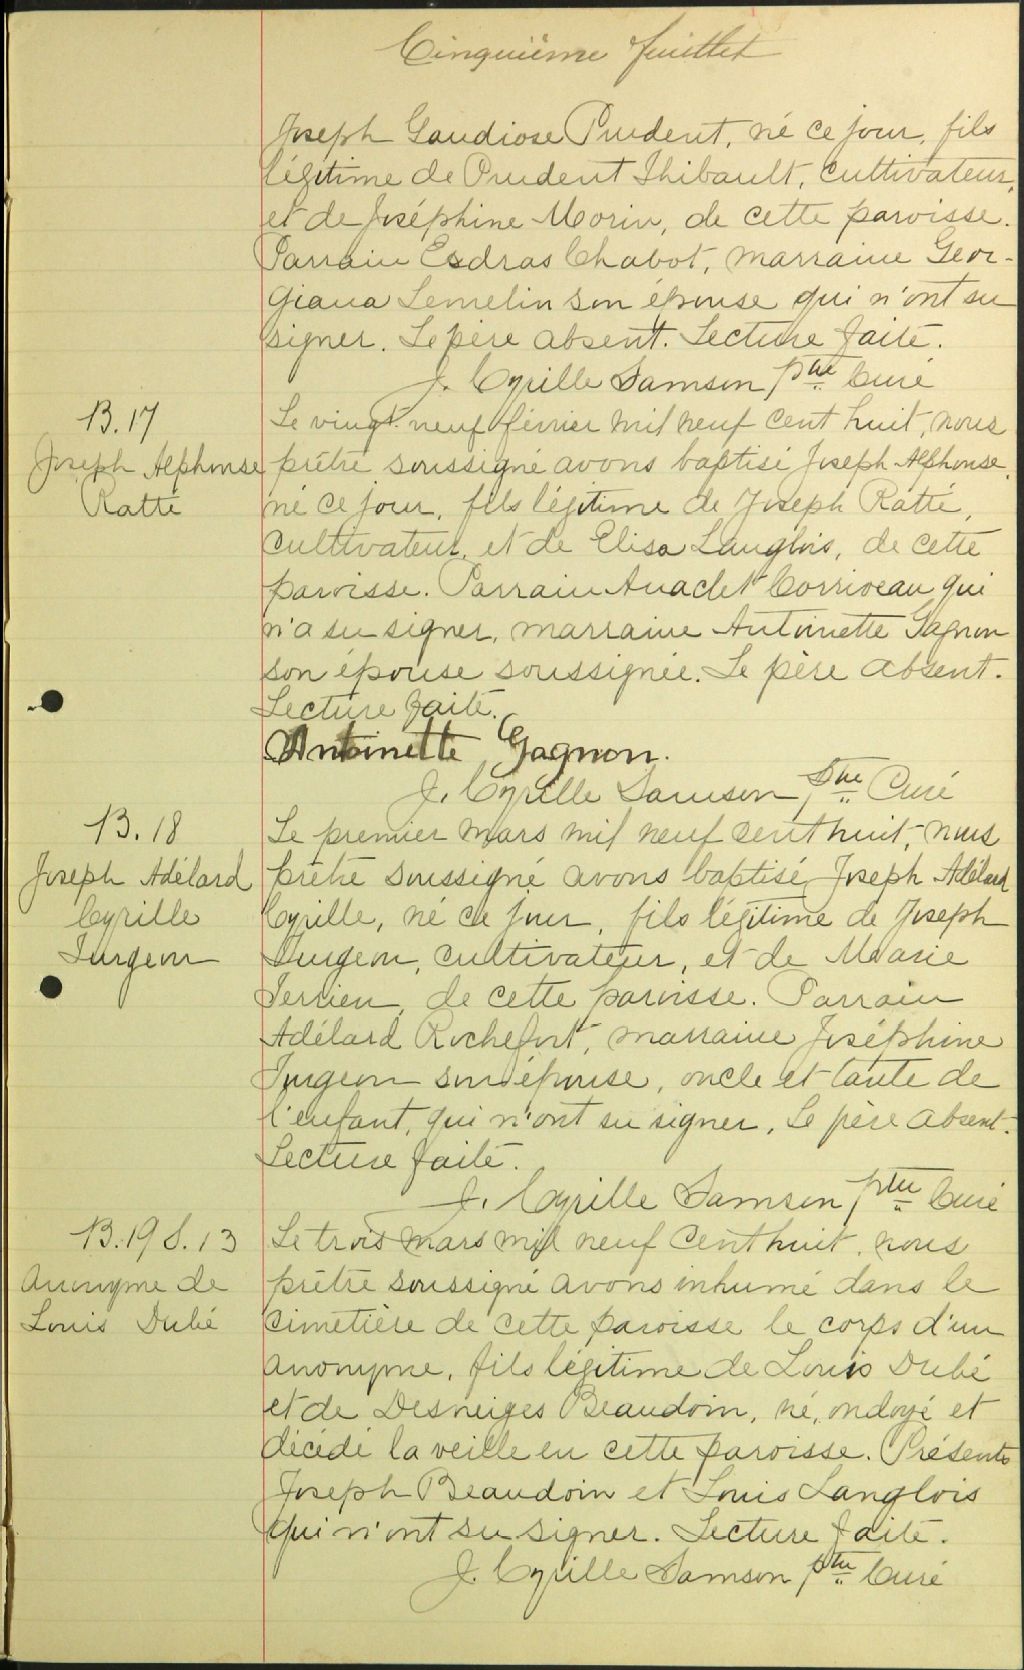 Cinquième feuillet
Joseph Gaudiose Prudent, né ce jour, fils
légitime de Prudent Thibault, cultivateur,
et de Joséphine Morin, de cette paroisse.
Parrain Esdras Chabot, marraine Geor-
giana Lemelin son épouse qui n'ont su
signer. Le père absent. Lecture faite.
J. Cyrille Samson ptre Curé
B. 17
Joseph Alphonse
Ratté
Le vingt-neuf février mil neuf cent huit, nous
prêtre soussigné avons baptisé Joseph Alphonse,
né ce jour, fils légitime de Joseph Ratté,
cultivateur, et de Elisa Langlois, de cette
paroisse. Parrain Anaclet Corriveau qui
n'a su signer, marraine Antoinette Gagnon
son épouse soussignée. Le père absent.
Lecture faite.
Antoinette Gagnon.
J. Cyrille Samson ptre Curé
B. 18
Joseph Adélard
Cyrille
Turgeon
Le premier mars mil neuf cent huit, nous
prêtre soussigné avons baptisé Joseph Adélard
Cyrille, né ce jour, fils légitime de Joseph
Turgeon, cultivateur, et de Marie
Terrien, de cette paroisse. Parrain
Adélard Rochefort, marraine Joséphine
Turgeon son épouse, oncle et tante de
l'enfant, qui n'ont su signer. Le père absent.
Lecture faite.
J. Cyrille Samson ptre Curé
B. 19 S. 13
Anonyme de
Louis Dubé
Le trois mars mil neuf cent huit, nous
prêtre soussigné avons inhumé dans le
cimetière de cette paroisse le corps d'un
anonyme, fils légitime de Louis Dubé
et de Desneiges Beaudoin, né, ondoyé et
décédé la veille en cette paroisse. Présents
Joseph Beaudoin et Louis Langlois
qui n'ont su signer. Lecture faite.
J. Cyrille Samson ptre Curé